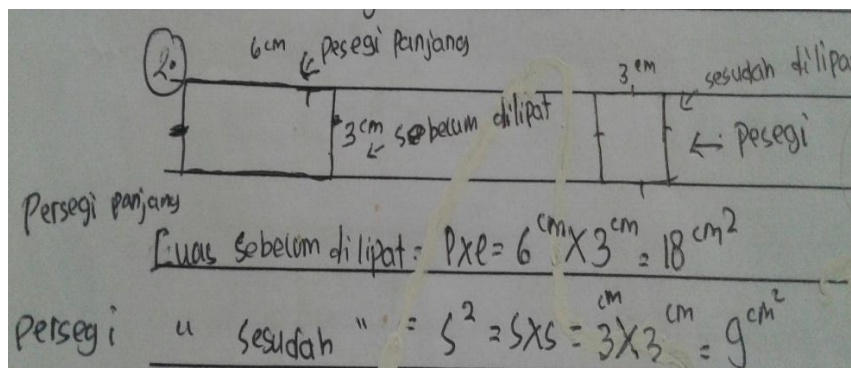 2.
6 cm
Pesegi Panjang
3 cm
sesudah dilipa
3 cm sebelum dilipat
Pesegi
Persegi panjang
Luas sebelum dilipat = P x l = 6 cm X 3 cm = 18 cm²
Persegi " sesudah " = S² = S x s = 3 cm X 3 cm = 9 cm²